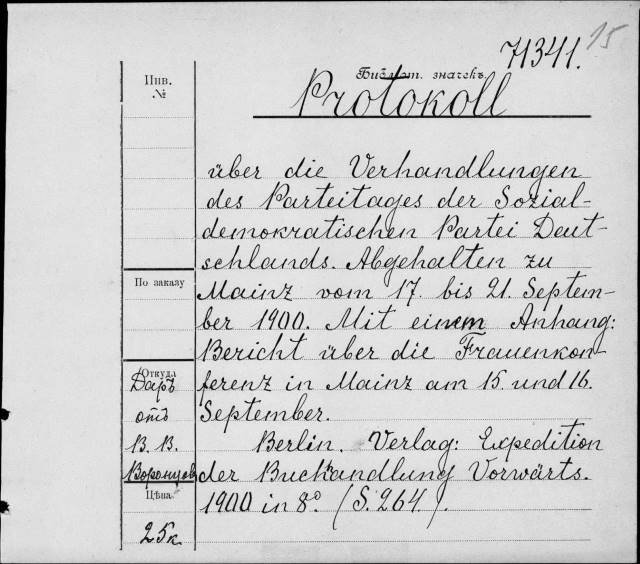 15
71341.
Библіот. значекъ
Protokoll
Инв.
№
über die Verhandlungen
des Parteitages der Sozial-
demokratischen Partei Deut-
schlands. Abgehalten zu
По заказу
Mainz vom 17. bis 21. Septem-
ber 1900. Mit einem Anhang:
Bericht über die Frauenkon-
Откуда
Даръ
ferenz in Mainz am 15. und 16.
отъ
September.
В. В.
Berlin. Verlag: Expedition
Воронцова
der Buchhandlung Vorwärts.
Цѣна
1900 in 8° (S. 264.).
25к.